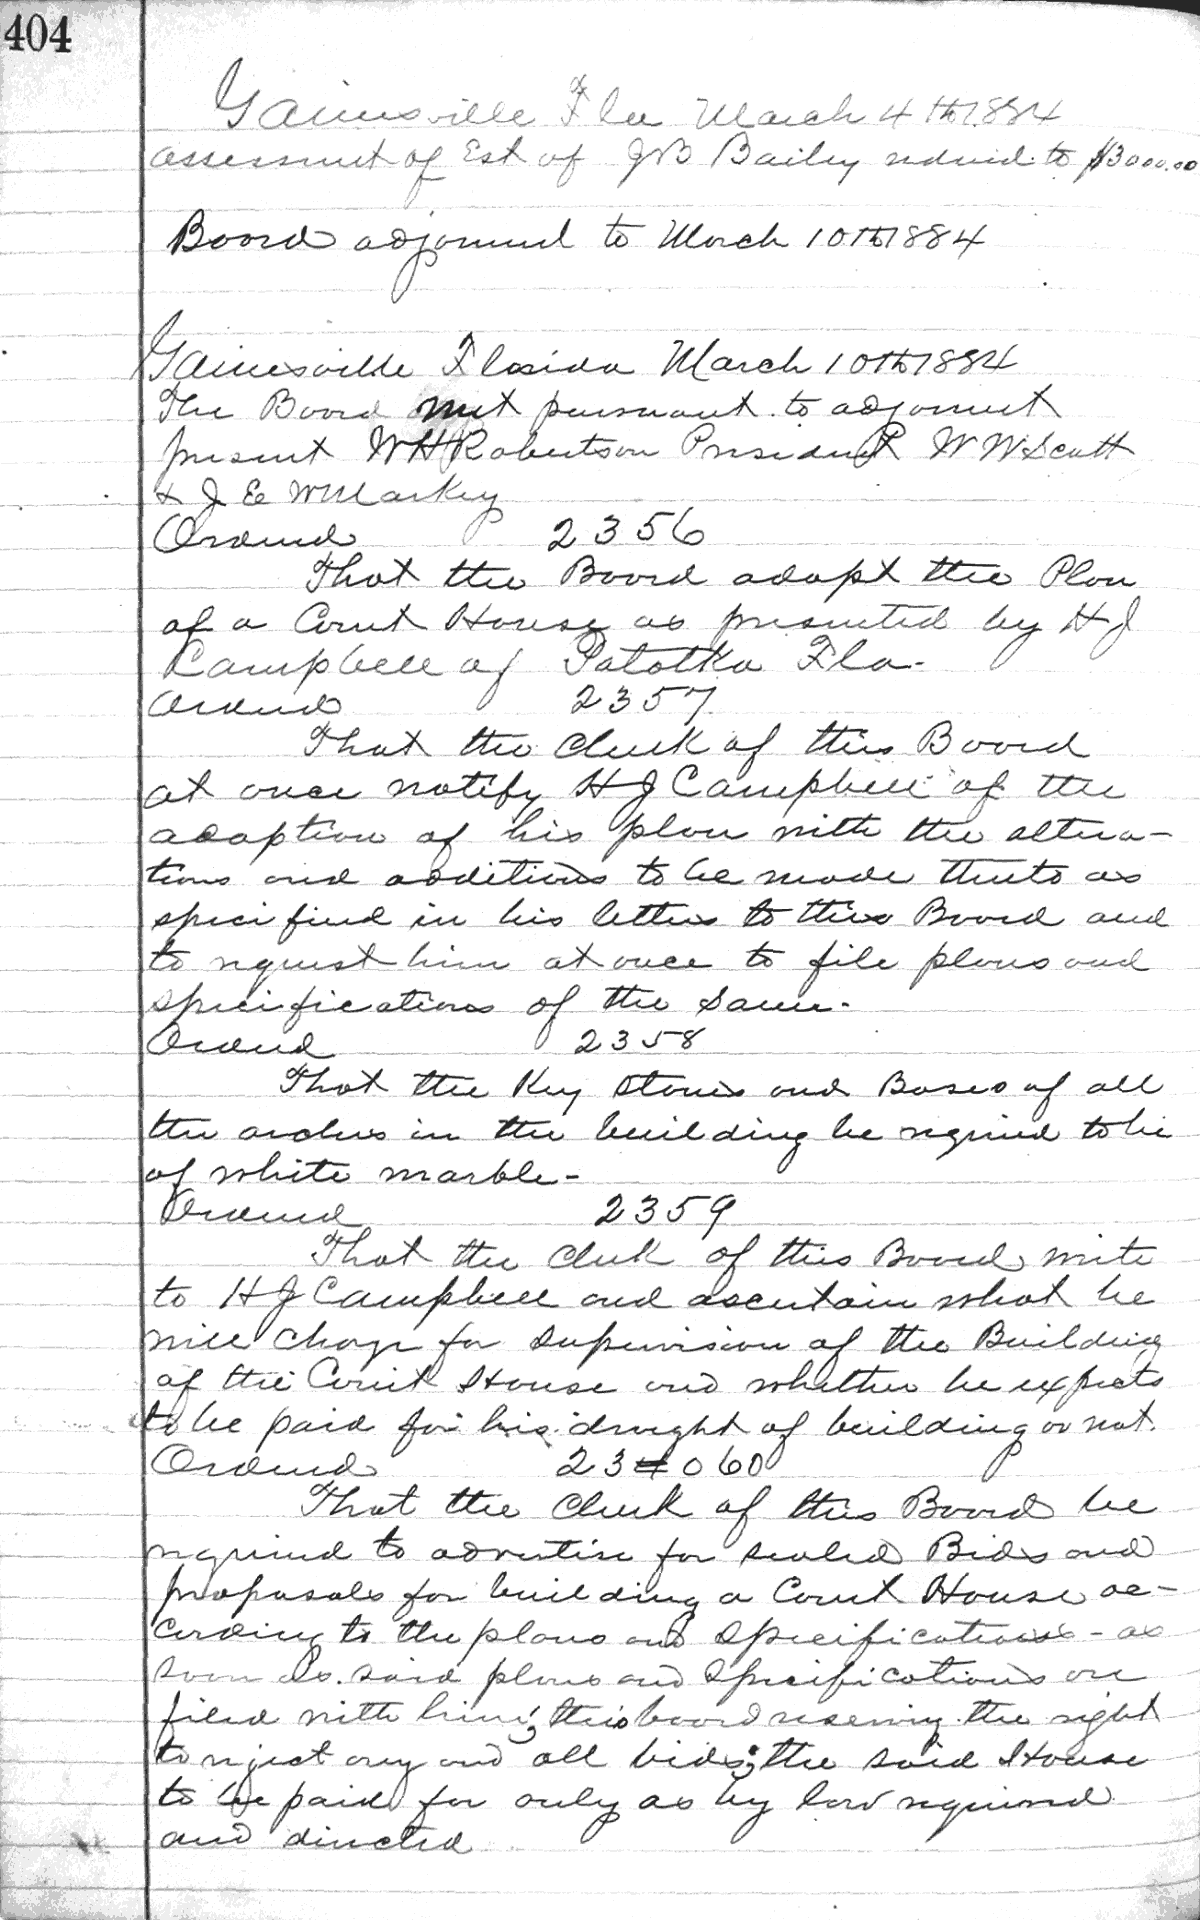 404
Gainesville Fla March 4th 1884
assessment of Est of JB Bailey reduced to $3000.00
Board adjourned to March 10th 1884
Gainesville Florida March 10th 1884
The Board met pursuant to adjornment
present WH Robertson President W W Scott
& J E
Ordered 2356
That the Board adopt the Plan
of a Court House as presented by H J
Campbell of Palatka Fla.
Ordered 2357
That the Clerk of this Board
at once notify H J Campbell of the
adoption of his plan with the altera-
tions and additions to be made thereto as
specified in his letters to this Board and
to request him at once to file plans and
specifications of the same.
Ordered 2358
That the Key Stones and Bases of all
the arches in the building be required to be
of white marble-
Ordered 2359
That the Clerk of this Board write
to H J Campbell and ascertain what he
will charge for supervision of the Building
of the Court House and whether he expects
to be paid for his draught of building or not.
Ordered 234060
That the Clerk of this Board be
required to advertise for sealed Bids and
proposals for building a Court House ac-
cording to the plans and specifications - as
soon as said plans and specifications are
filed with him; this board reserving the right
to reject any and all bids; the said House
to be paid for only as by law required
and directed